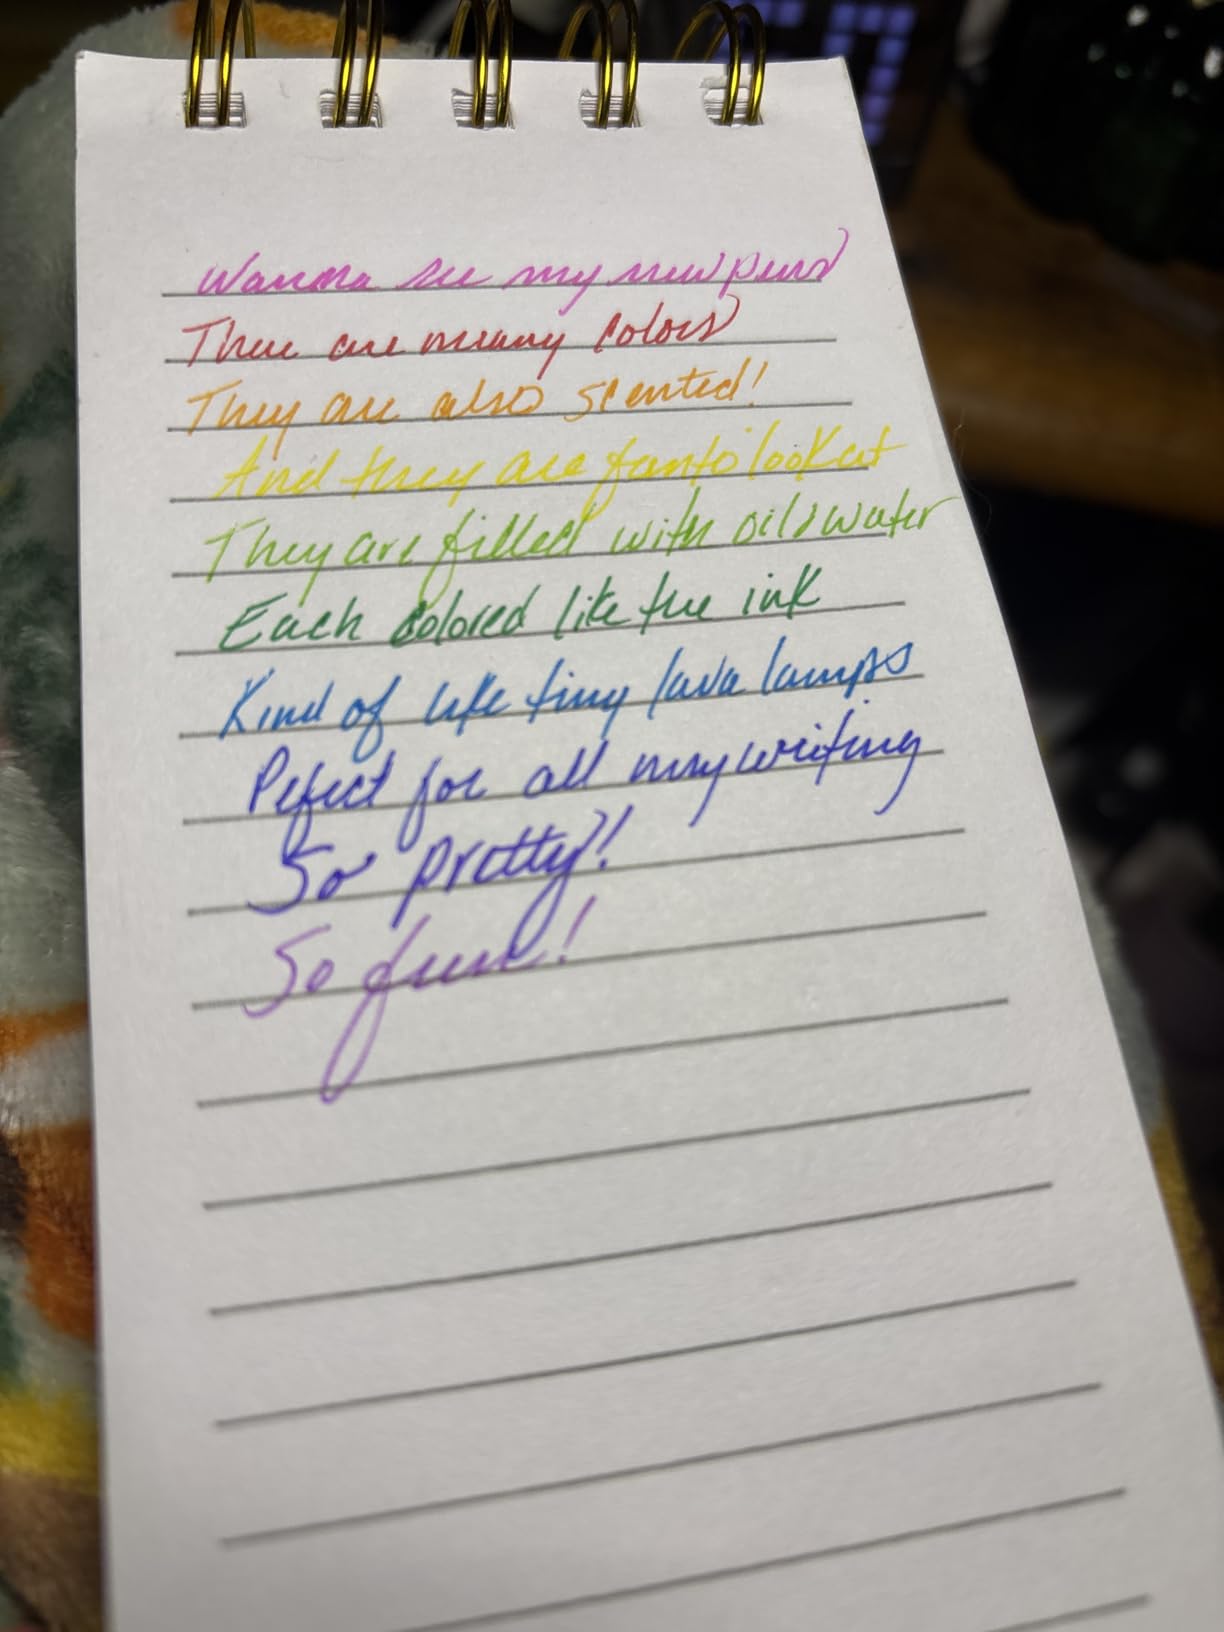 Wanna see my new pens
There are many colors
They are also scented!
And they are fun to look at
They are filled with oil & water
Each colored like the ink
Kind of like tiny lava lamps
Pefect for all my writing
So pretty!
So fun!